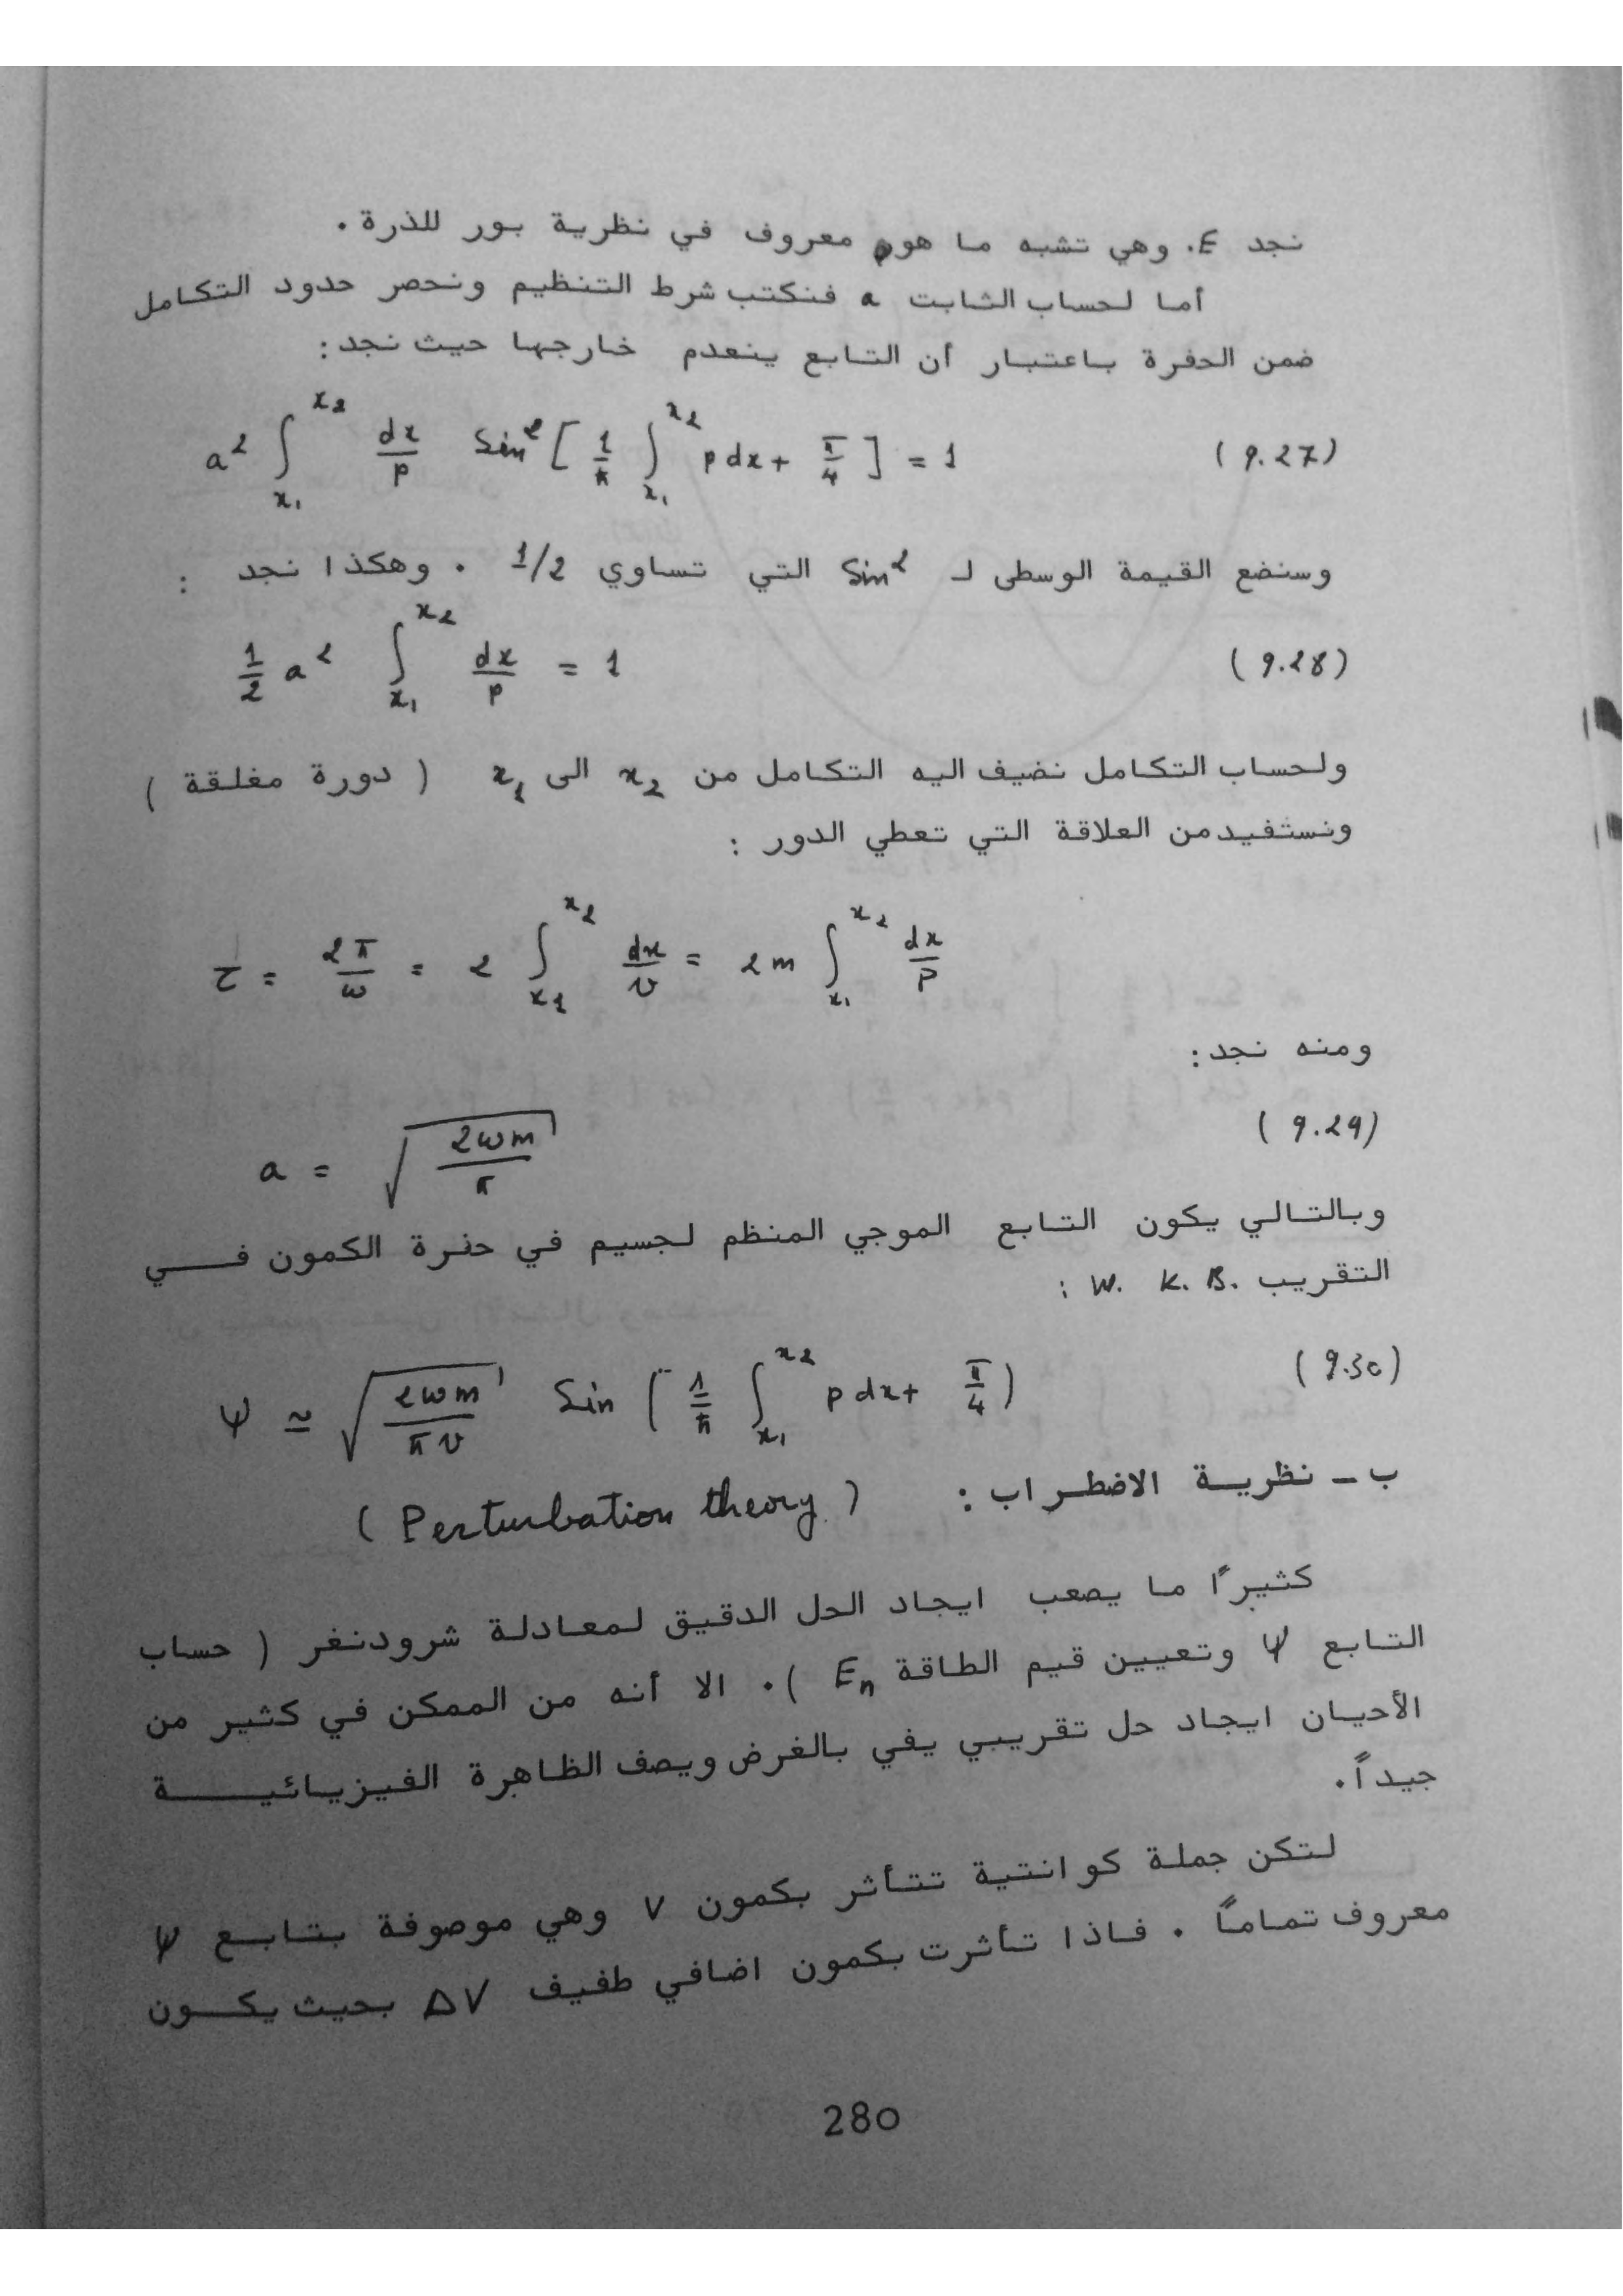 نجد E. وهي تشبه ما هو معروف في نظرية بور للذرة .
أما لحساب الثابت a فنكتب شرط التنظيم ونحصر حدود التكامل
ضمن الحفرة باعتبار أن التابع ينعدم خارجها حيث نجد:
a² ∫_{x₁}^{x₂} dx/p Sin² [ 1/ħ ∫_{x₁}^{x₂} p dx + π/4 ] = 1 (9.27)
وسنضع القيمة الوسطى لـ Sin² التي تساوي 1/2 . وهكذا نجد :
1/2 a² ∫_{x₁}^{x₂} dx/p = 1 (9.28)
ولحساب التكامل نضيف اليه التكامل من x₂ الى x₁ ( دورة مغلقة )
ونستفيد من العلاقة التي تعطي الدور :
τ = 2π/ω = 2 ∫_{x₁}^{x₂} dx/v = 2m ∫_{x₁}^{x₂} dx/p
ومنه نجد:
a = √(2ωm/π) (9.29)
وبالتالي يكون التابع الموجي المنظم لجسيم في حفرة الكمون فــي
التقريب W. K. B. :
ψ ≃ √(2ωm/πv) Sin ( 1/ħ ∫_{x₁}^{x₂} p dx + π/4 ) (9.30)
ب - نظرية الاضطراب : ( Perturbation theory )
كثيراً ما يصعب ايجاد الحل الدقيق لمعادلة شرودنغر ( حساب
التابع ψ وتعيين قيم الطاقة Eₙ ). الا أنه من الممكن في كثير من
الأحيان ايجاد حل تقريبي يفي بالغرض ويصف الظاهرة الفيزيائيـــة
جيداً.
لتكن جملة كوانتية تتأثر بكمون V وهي موصوفة بتابع ψ
معروف تماماً . فاذا تأثرت بكمون اضافي طفيف ΔV بحيث يكــون
280